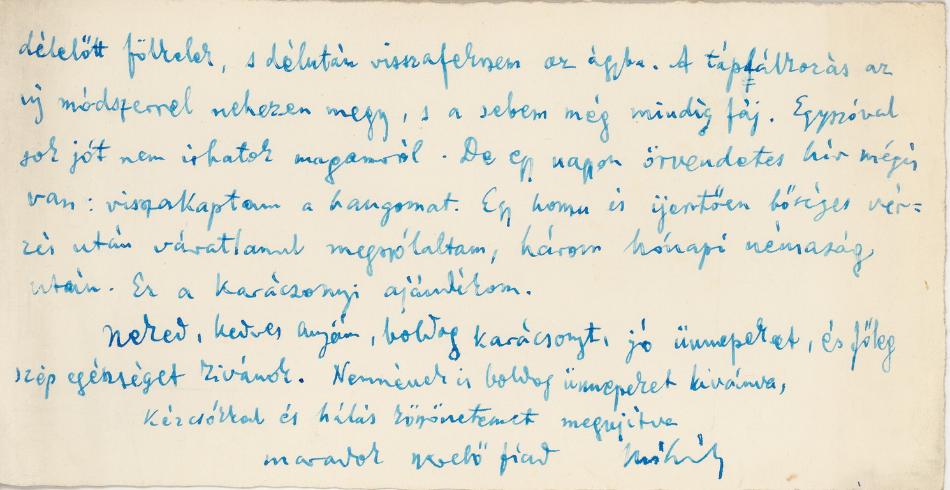 délelőtt fölkelek, s délután visszafekszem az ágyba. A táplálkozás az
új módszerrel nehezen megy, s a sebem még mindig fáj. Egyszóval
sok jót nem írhatok magamról. De egy nagyon örvendetes hír mégis
van: visszakaptam a hangomat. Egy hosszu és ijesztően bőséges vér=
zés után váratlanul megszólaltam, három hónapi némaság
után. Ez a karácsonyi ajándékom.
Neked, kedves anyám, boldog karácsonyt, jó ünnepeket, és főleg
szép egészséget kívánok. Nennének is boldog ünnepeket kivánva,
Kézcsókkal és hálás köszönetemet megujítva
maradok szerető fiad Mihály